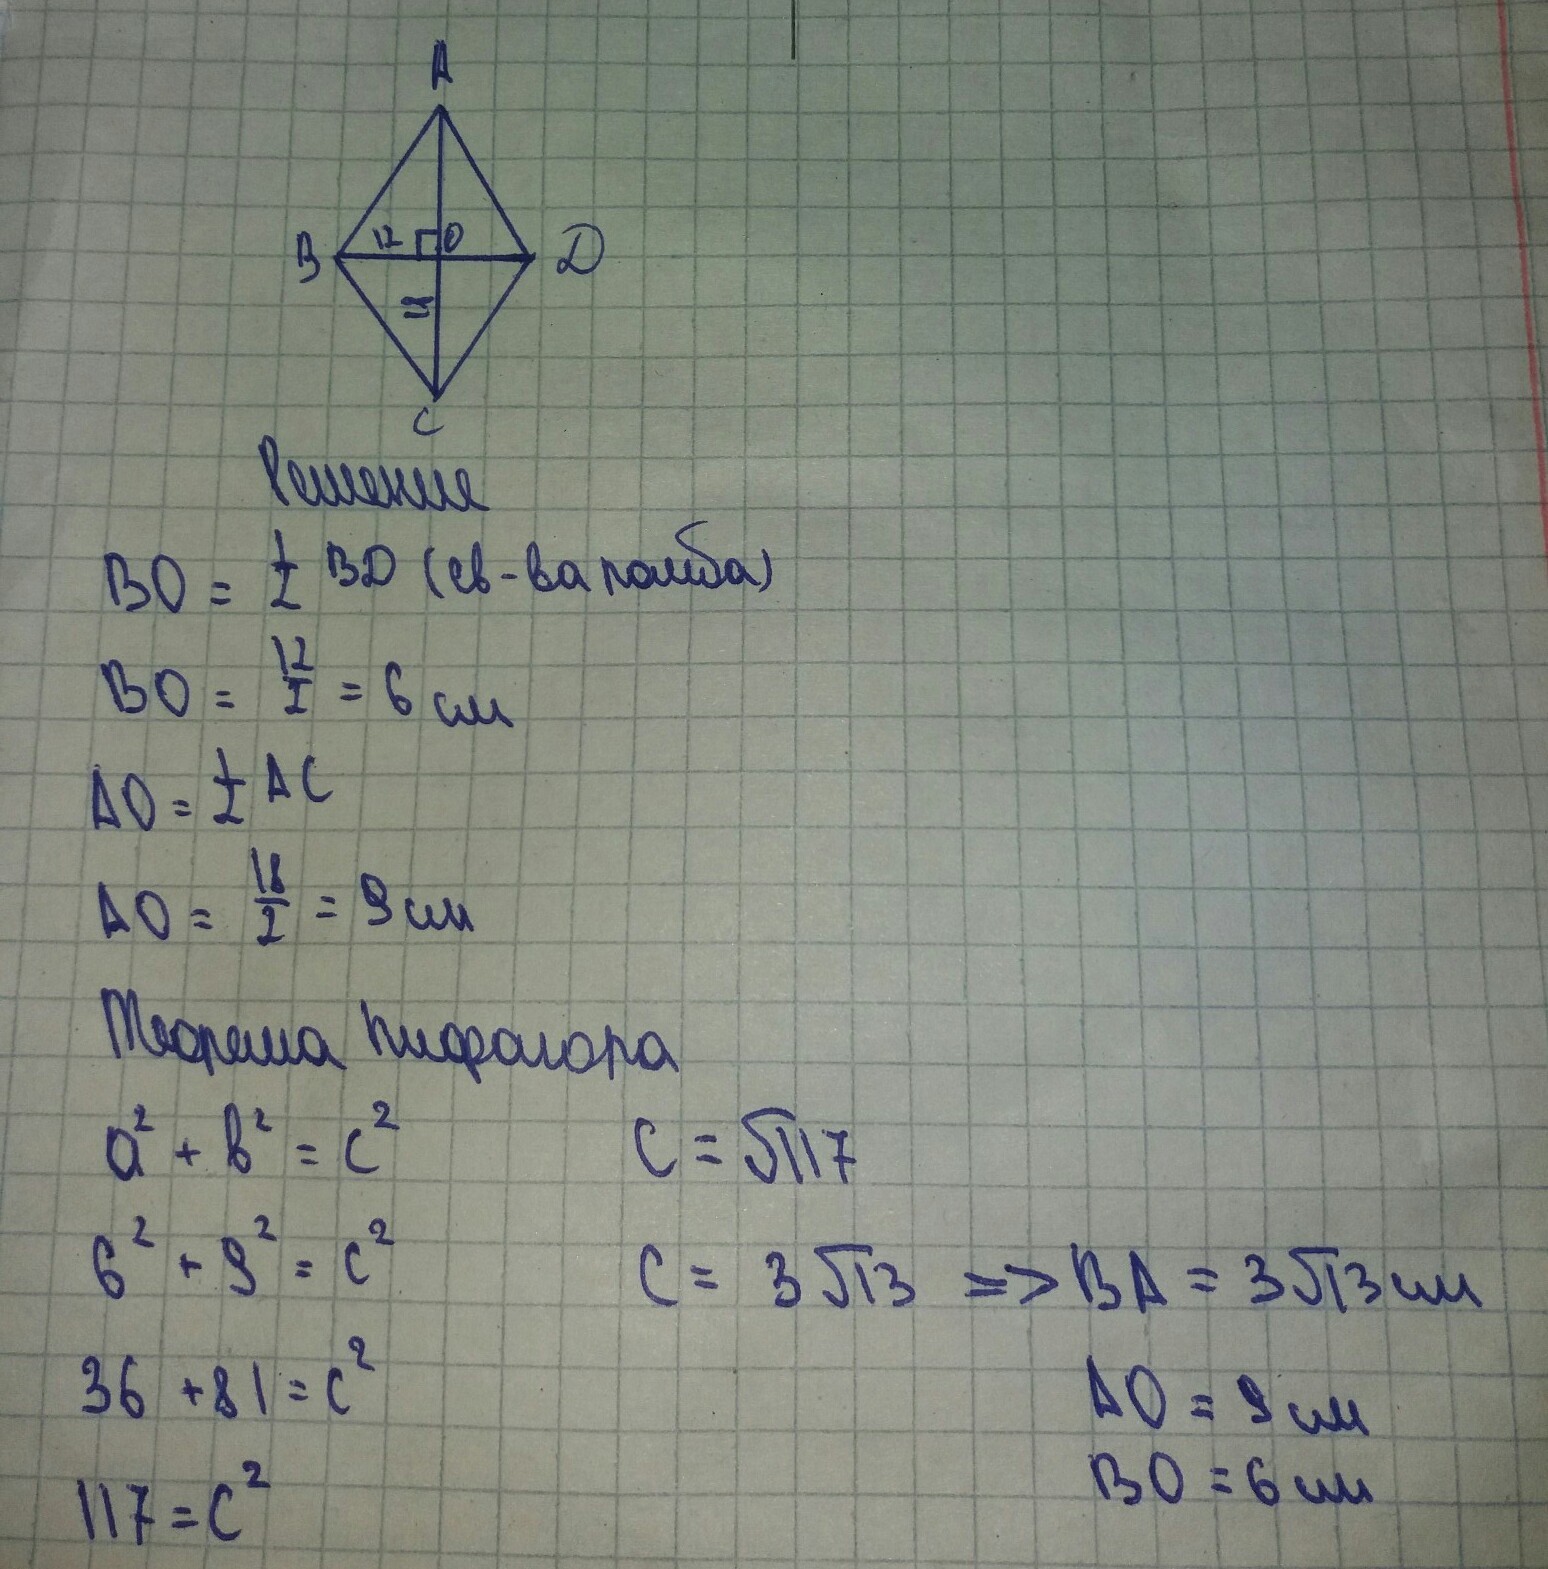 A
B 12 O D
18
C
Решение
BO = 1/2 BD (св-ва ромба)
BO = 12/2 = 6 см
AO = 1/2 AC
AO = 18/2 = 9 см
Теорема Пифагора
a² + b² = c²
6² + 9² = c²
36 + 81 = c²
117 = c²
C = √117
C = 3√13 => BA = 3√13 см
AO = 9 см
BO = 6 см